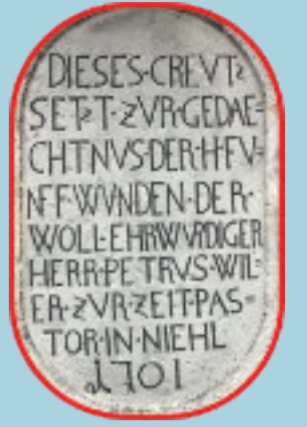 DIESES·CREVTZ
SETZT·ZVR·GEDAE=
CHTNVS·DER·H·FV=
NFF·WVNDEN·DER·
WOLL·EHRWVRDIGER
HERR·PETRVS·WIL=
ER·ZVR·ZEIT·PAS=
TOR·IN·NIEHL
1701